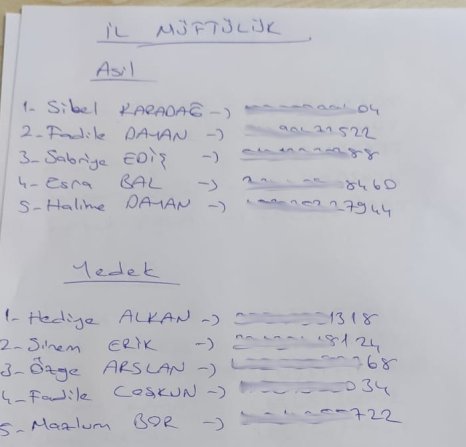 İL MÜFTÜLÜK
Asil
1- Sibel KARADAĞ -> 04
2- Fadile DAYAN -> 22522
3- Sabriye EDİŞ -> 88
4- Esra BAL -> 8460
5- Halime DAYAN -> 27944
Yedek
1- Hediye ALKAN -> 1318
2- Sinem ERİK -> 18124
3- Özge ARSLAN -> 68
4- Fadile COŞKUN -> 034
5- Mazlum BOR -> 722